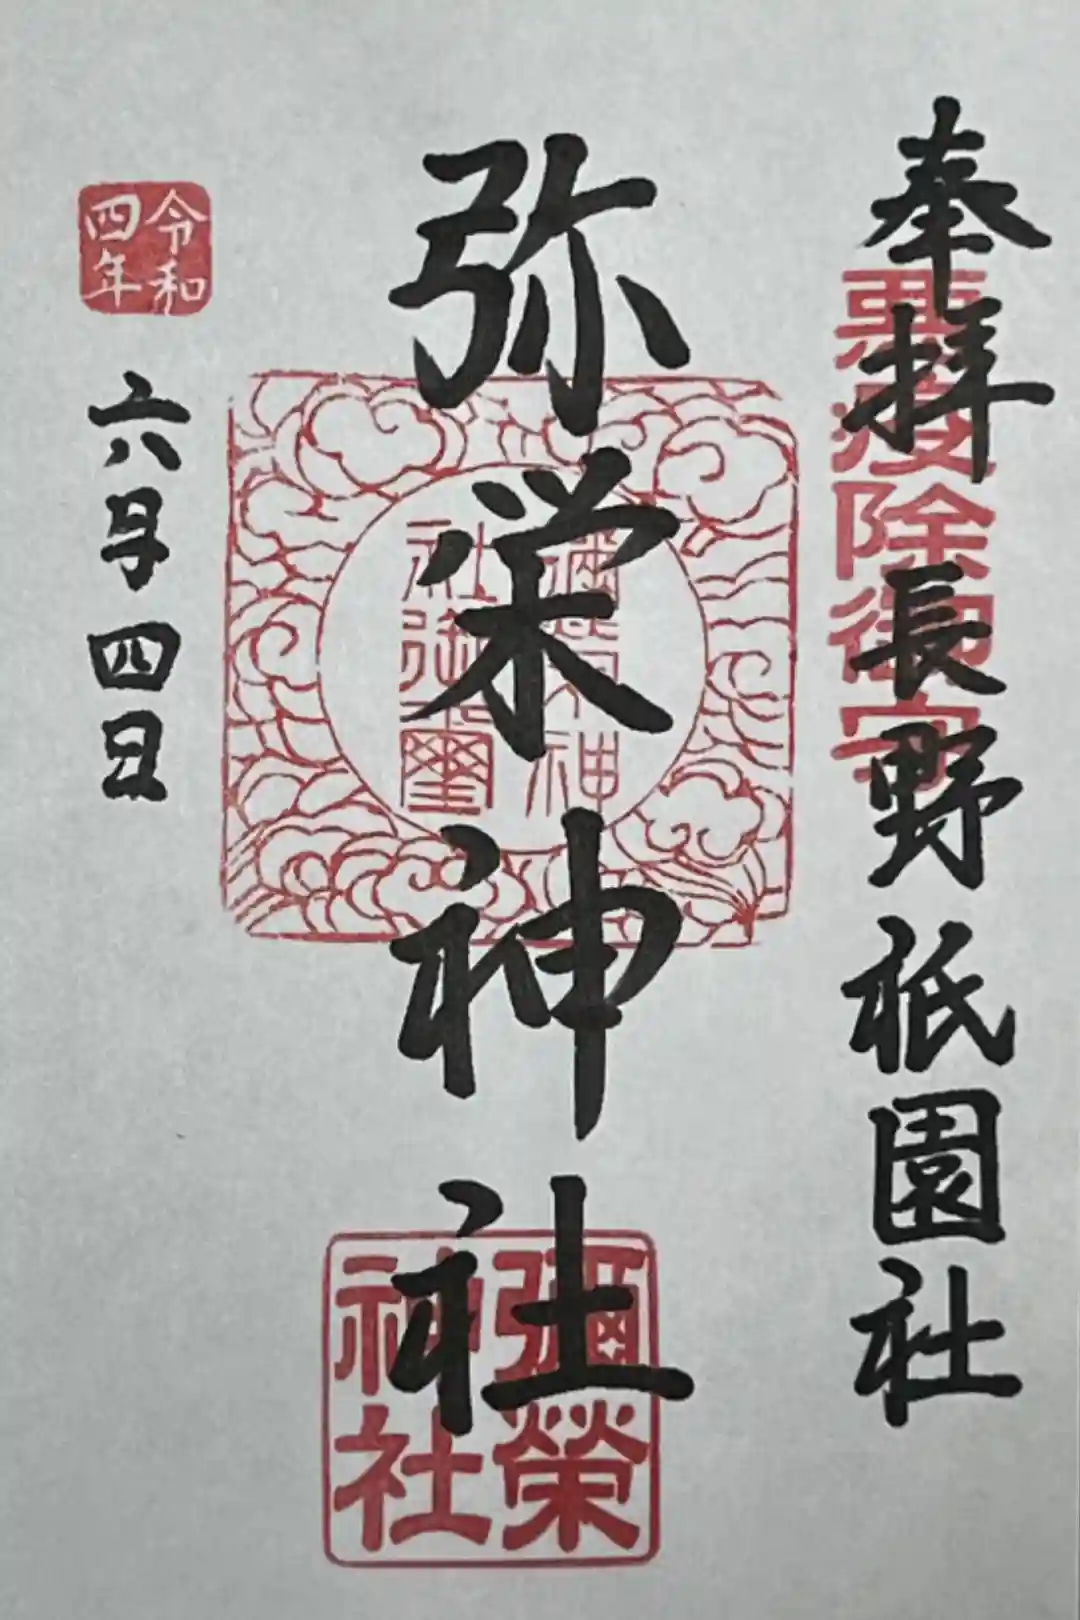 奉拝 長野祇園社
悪疫除御守
弥栄神社
彌榮神
社御璽
彌榮
神社
令和
四年
六月四日